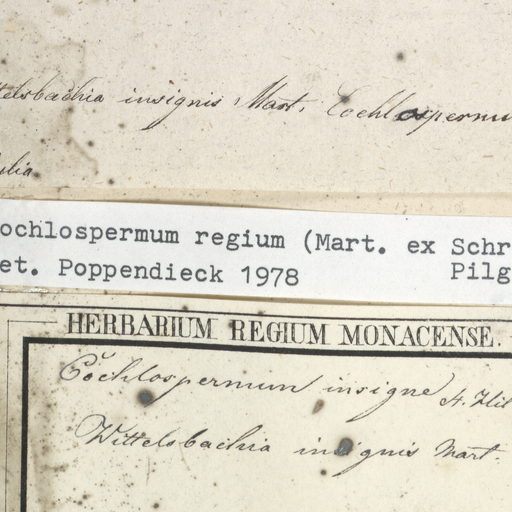 telsbachia insignis Mart. Cochlospermu
ulia
ochlospermum regium (Mart. ex Schr
et. Poppendieck 1978 Pilg
HERBARIUM REGIUM MONACENSE.
Cochlospermum insigne St. Hil
Wittelsbachia insignis Mart.